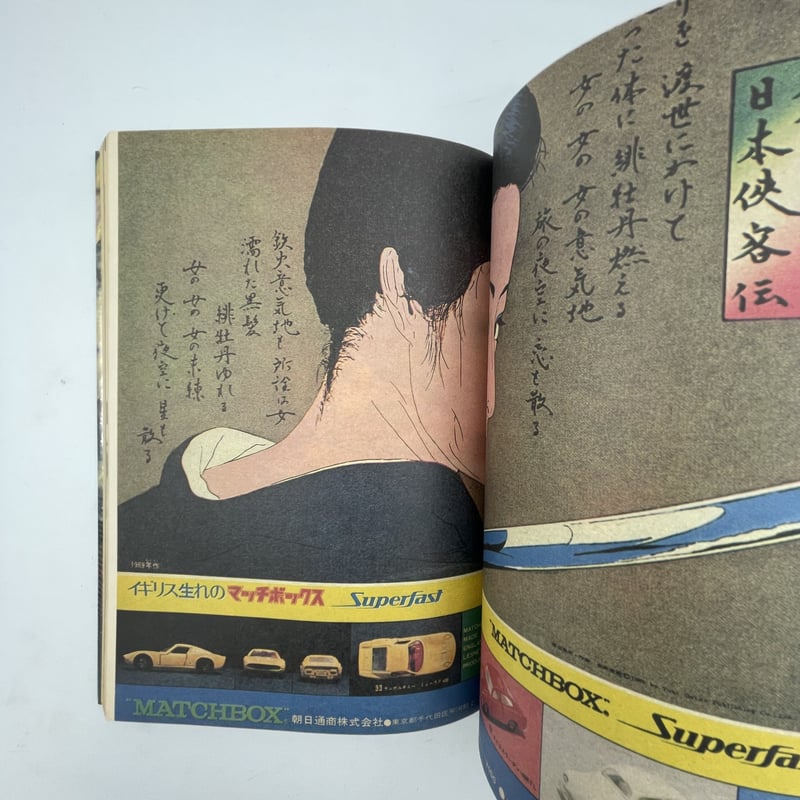 日本侠客伝
りを渡世にかけて
った体に緋牡丹燃える
女の女の女の意気地
旅の夜空に恋も散る
鉄火意気地も所詮は女
濡れた黒髪
緋牡丹ゆれる
女の女の女の未練
更けて夜空に星も散る
1969年作
イギリス生れのマッチボックス Superfast
33 ランボルギーニ ミュウラ
"MATCHBOX" 朝日通商株式会社●東京都千代田区
"MATCHBOX"
Superfa